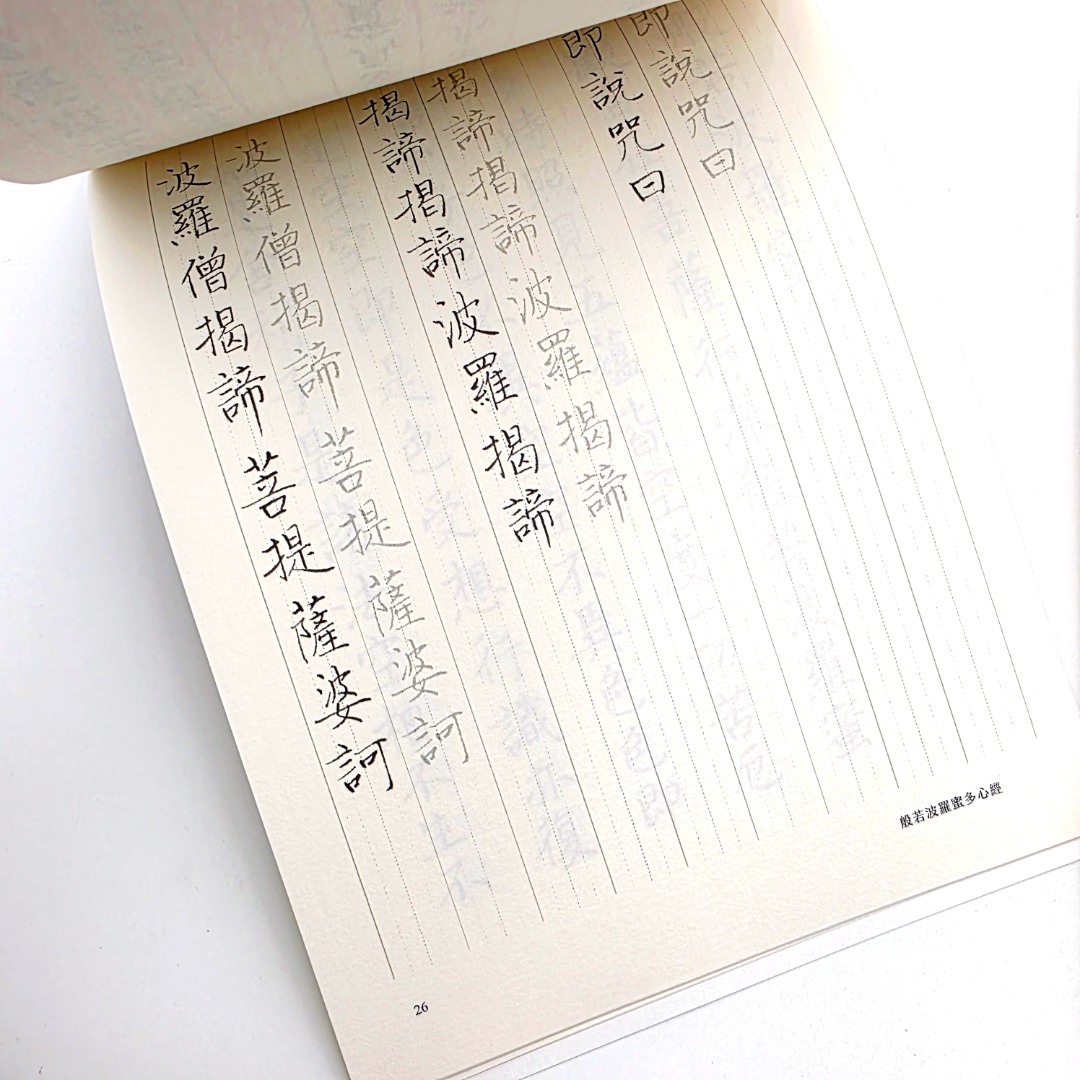 即說咒曰
即說咒曰
揭諦揭諦波羅揭諦
揭諦揭諦波羅揭諦
波羅僧揭諦菩提薩婆訶
波羅僧揭諦菩提薩婆訶
般若波羅蜜多心經
26